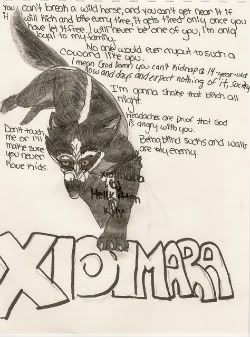 you can't break a wild horse, and you can't get near it if
it will kick and bite every time, it gets tired only once you
have let it free. I will never be one of you, I'm only
loyal to my family.
No one would ever erupt to such a
coward like you.
I mean God Damn you can't kidnap a 14-year-old
now and days and expect nothing of it, society
I'm gonna smoke that bitch all
night.
Headaches are proof that God
is angry with you.
Being blind sucks and walls
are my enemy.
Don't touch
me or I'll
make sure
you never
have kids.
By
XIOMARA